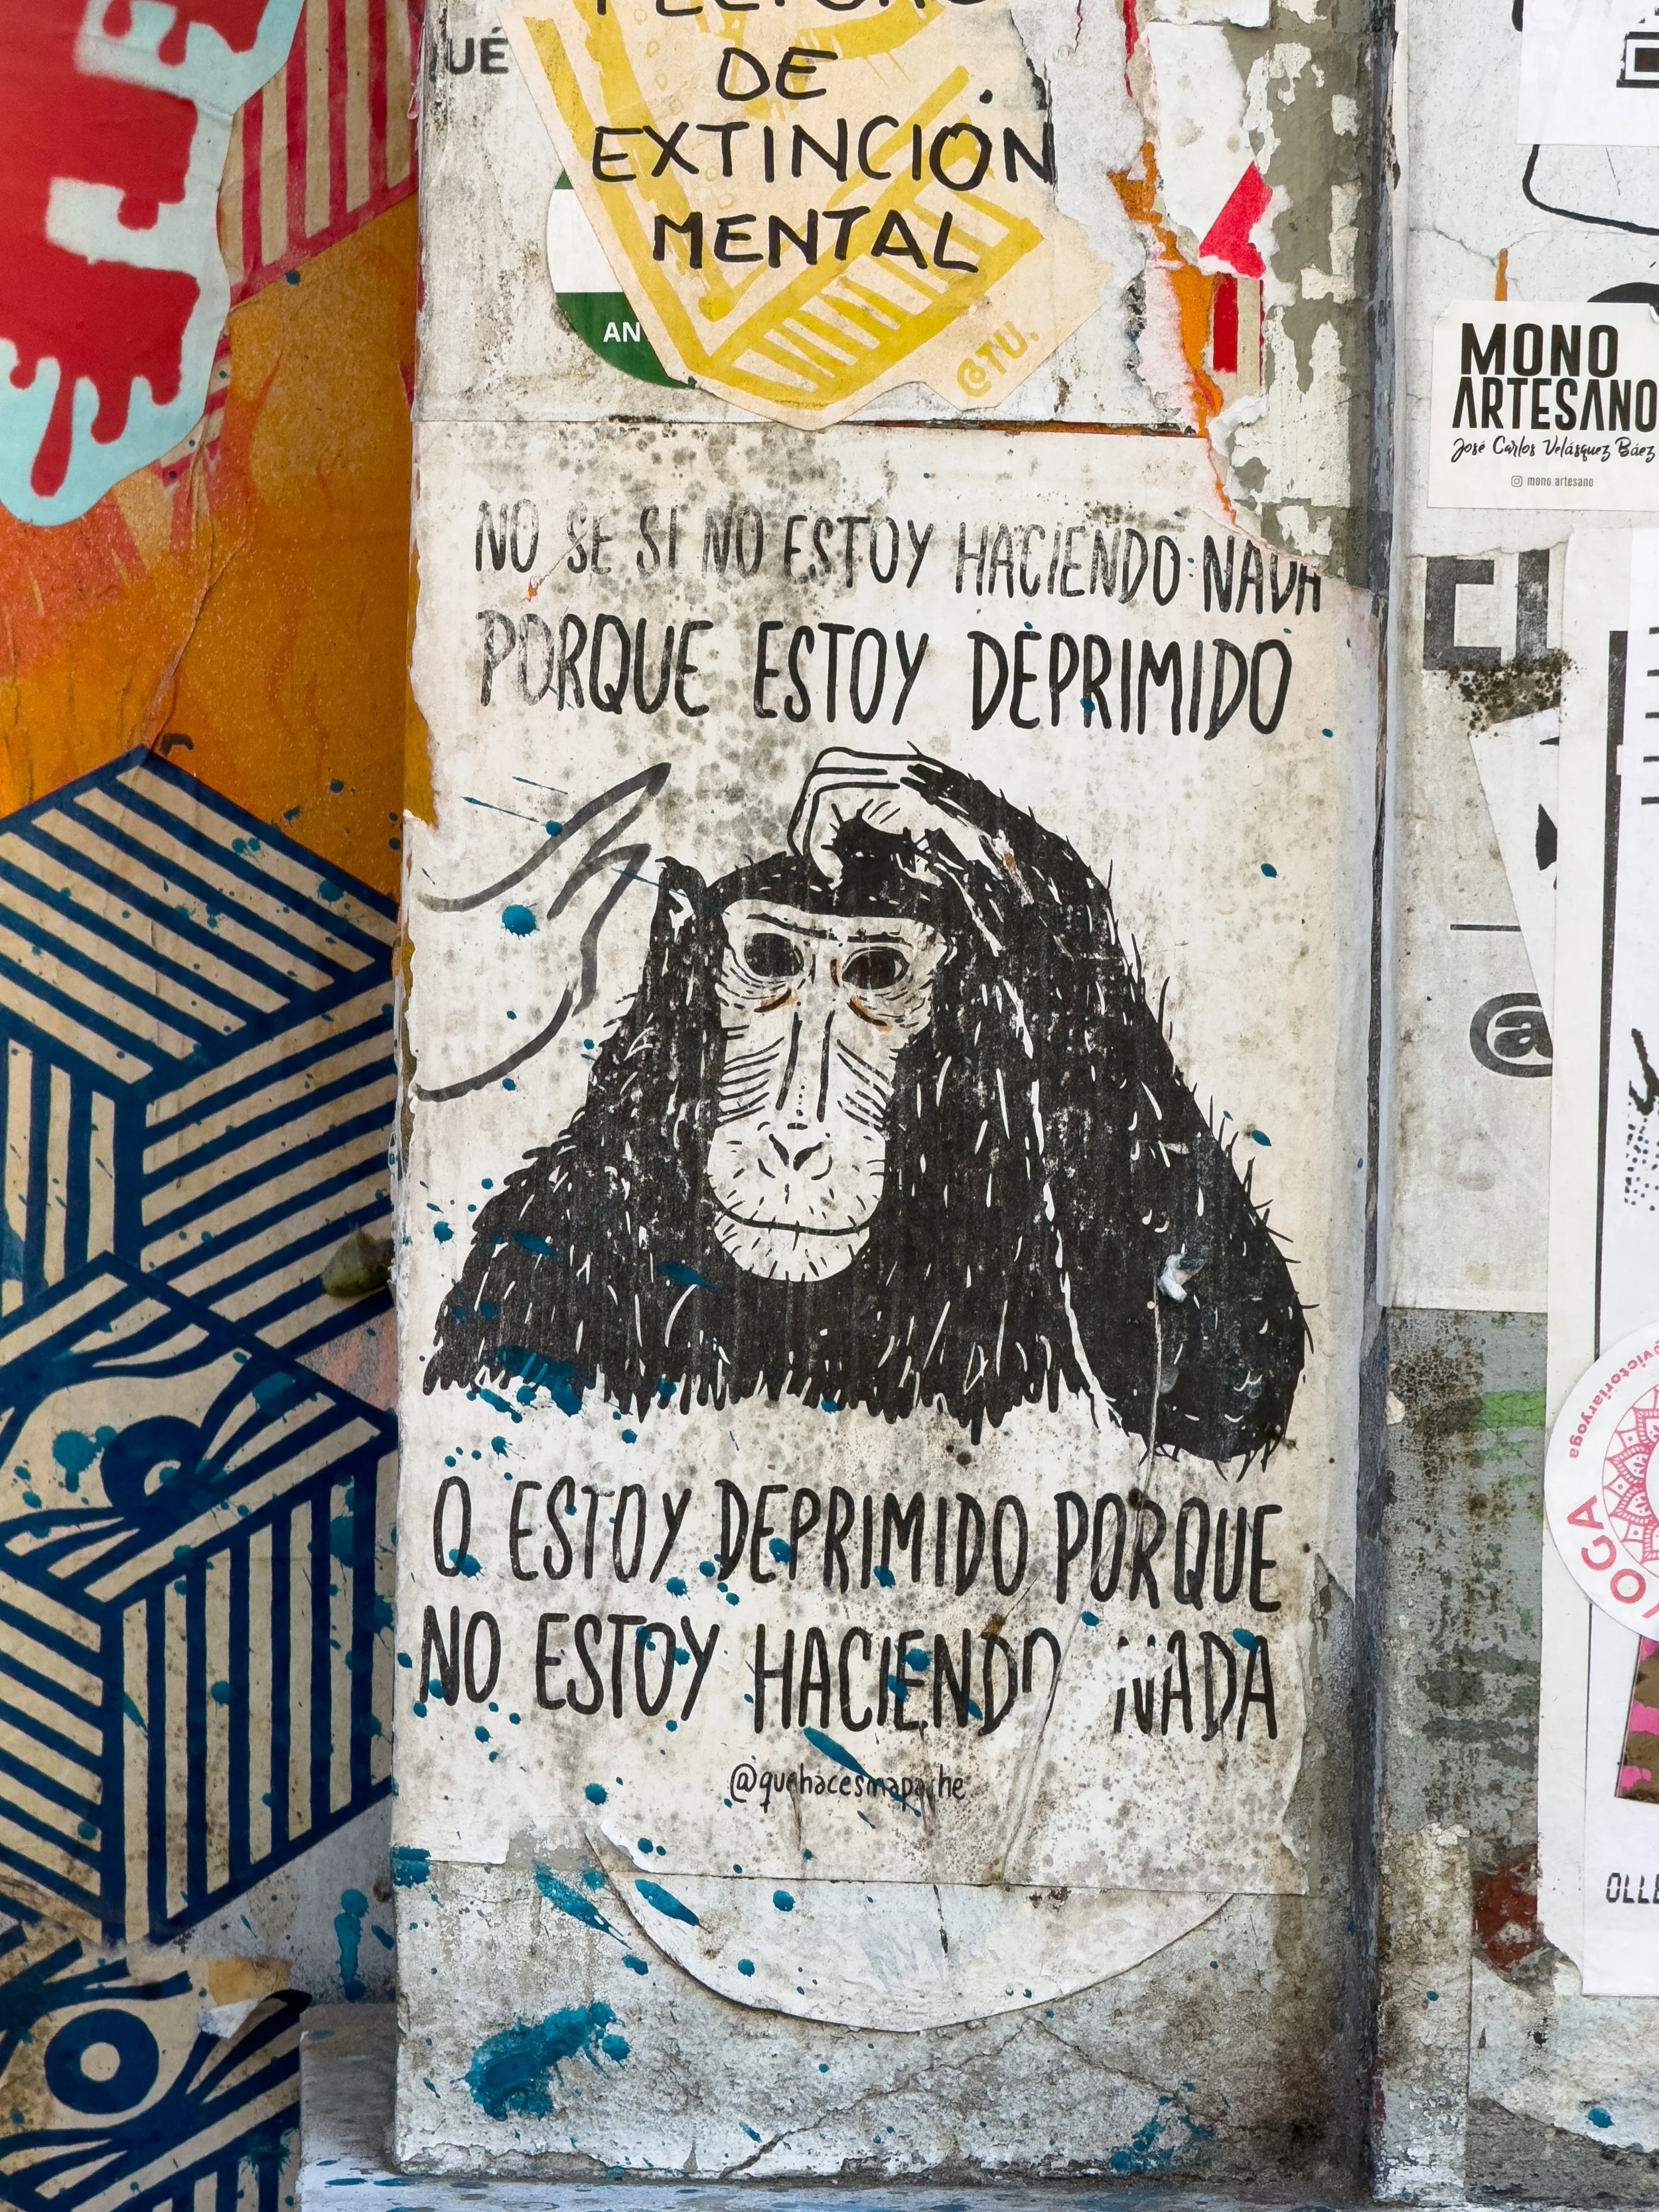 UÉ
DE
EXTINCIÓN
MENTAL
AN
©TU.
NO SE SI NO ESTOY HACIENDO NADA
PORQUE ESTOY DEPRIMIDO
O ESTOY DEPRIMIDO PORQUE
NO ESTOY HACIENDO NADA
@quehacesmapache
MONO
ARTESANO
José Carlos Velásquez Báez
mono.artesano
@
@victoriaryoga
YOGA
OLLE